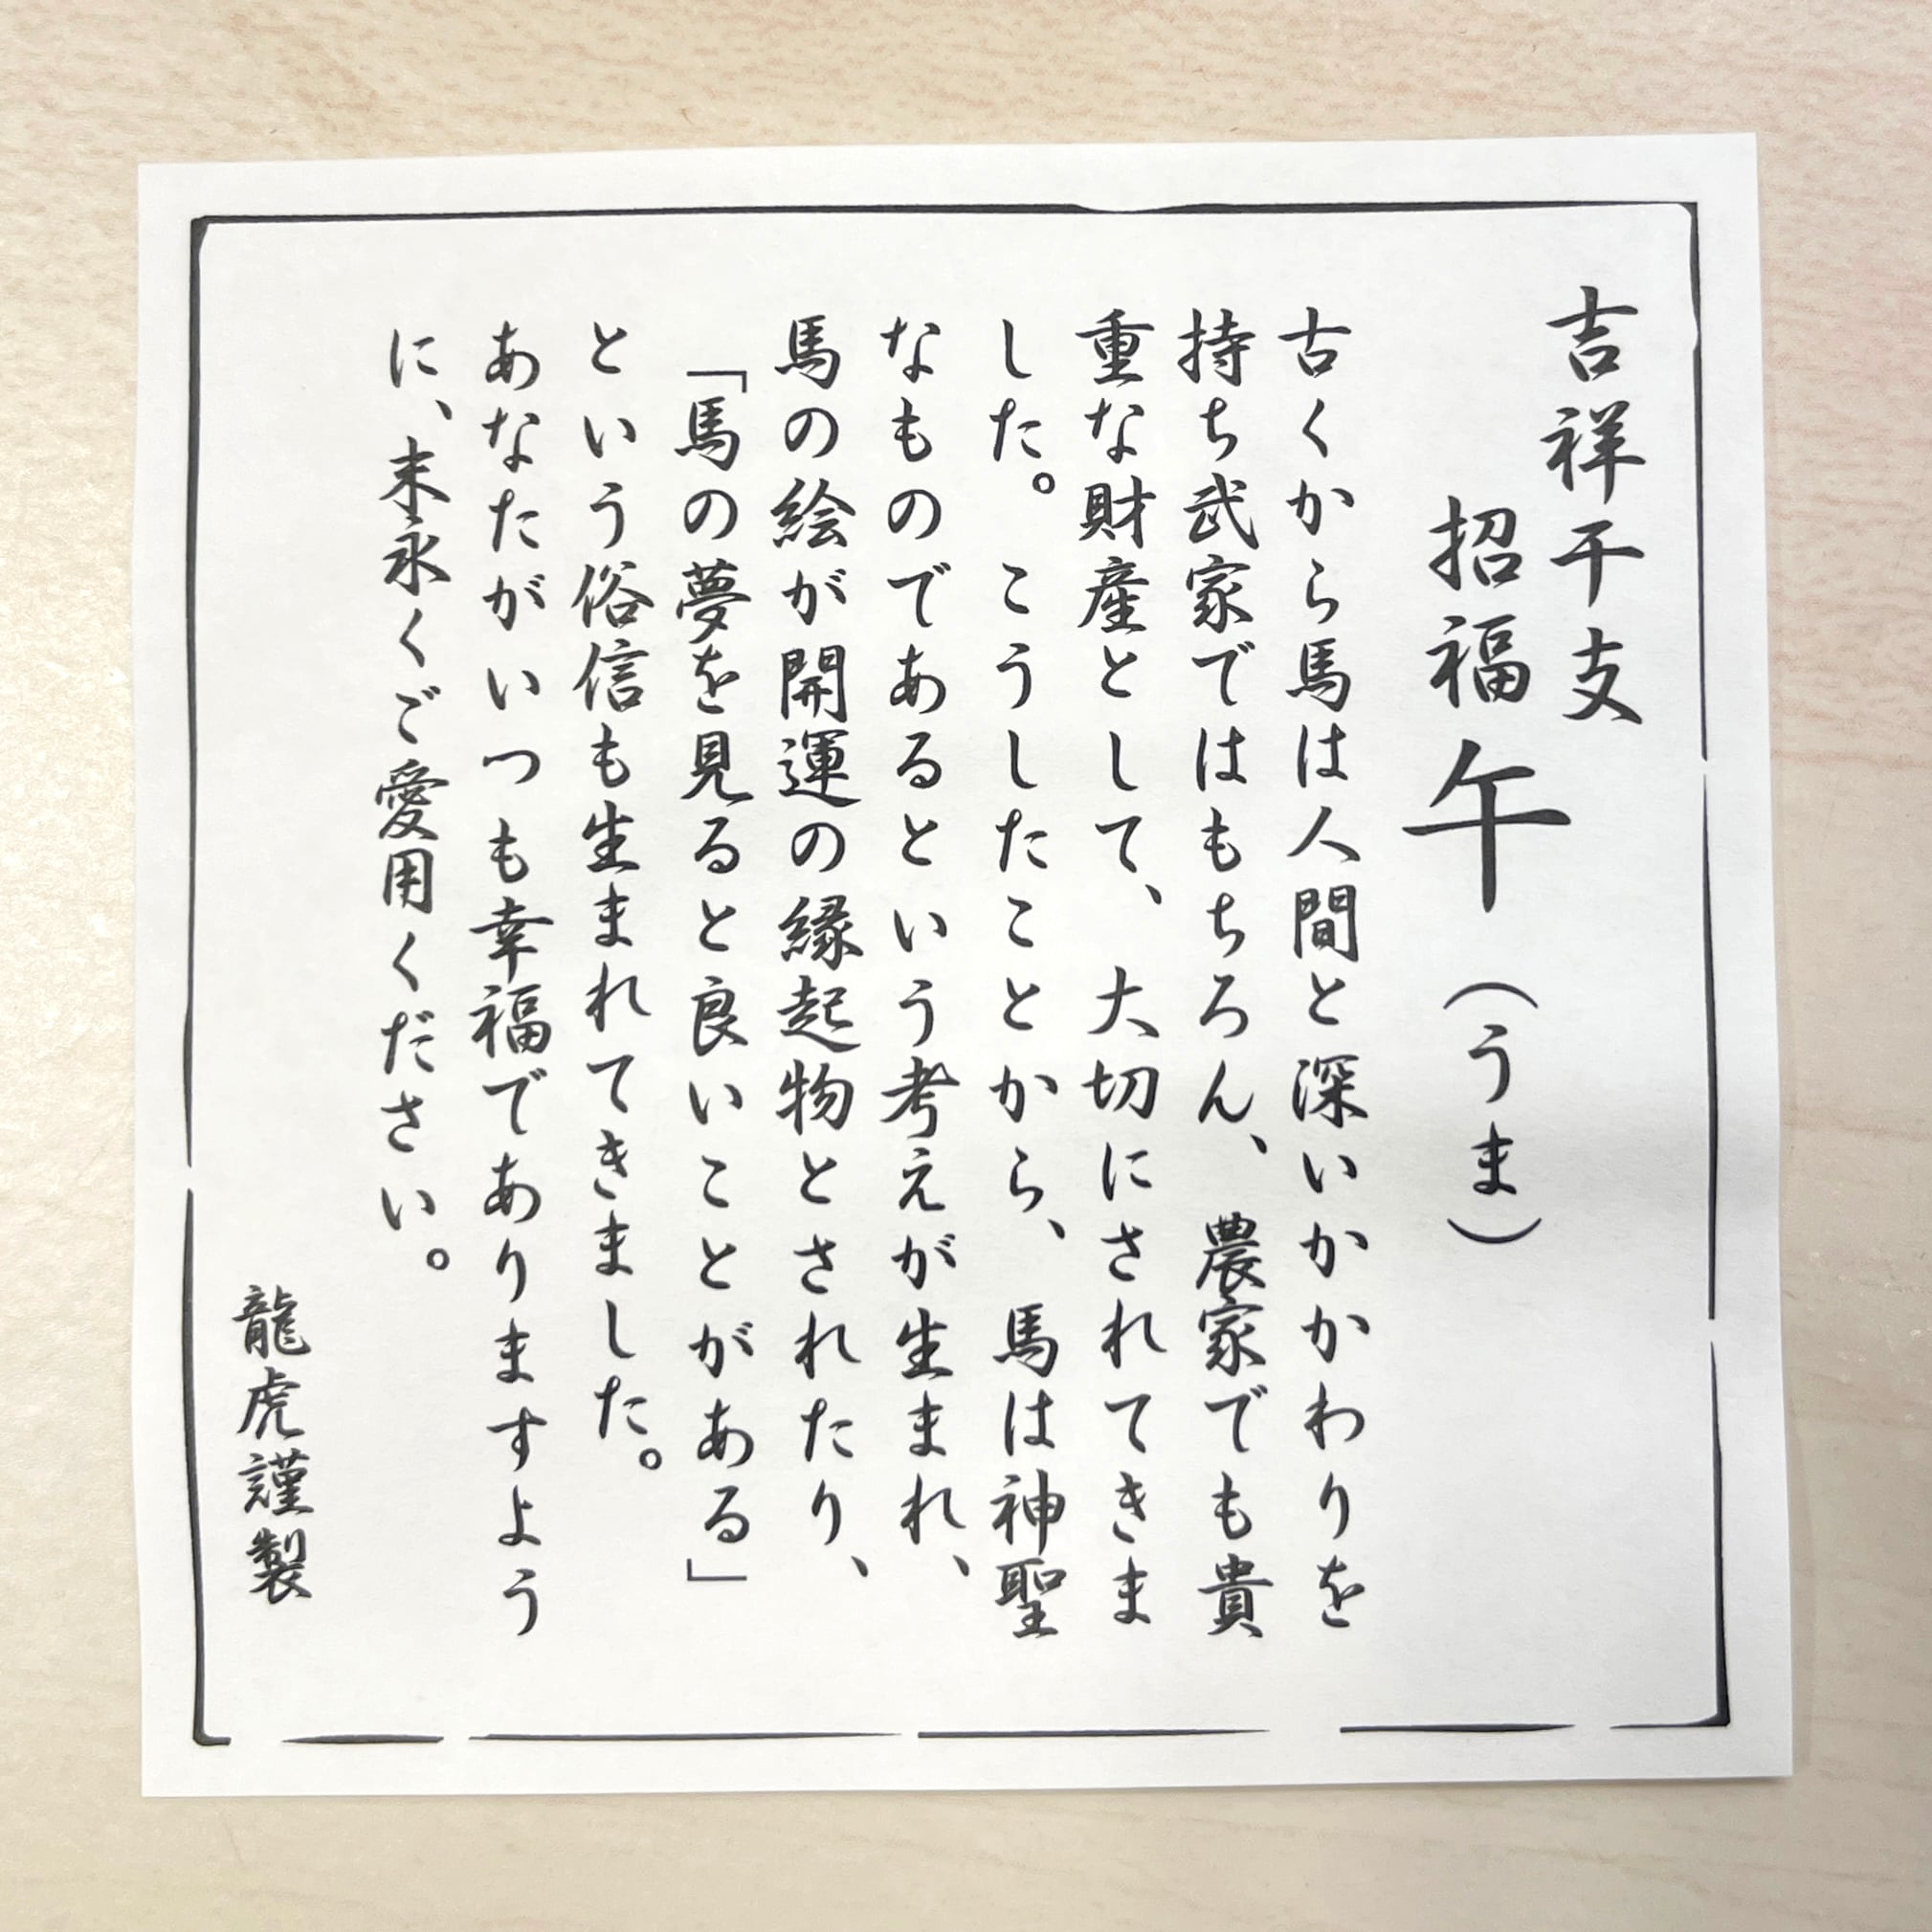 吉祥干支
招福午(うま)
古くから馬は人間と深いかかわりを
持ち武家ではもちろん、農家でも貴
重な財産として、大切にされてきま
した。こうしたことから、馬は神聖
なものであるという考えが生まれ、
馬の絵が開運の縁起物とされたり、
「馬の夢を見ると良いことがある」
という俗信も生まれてきました。
あなたがいつも幸福でありますよう
に、末永くご愛用ください。
龍虎謹製